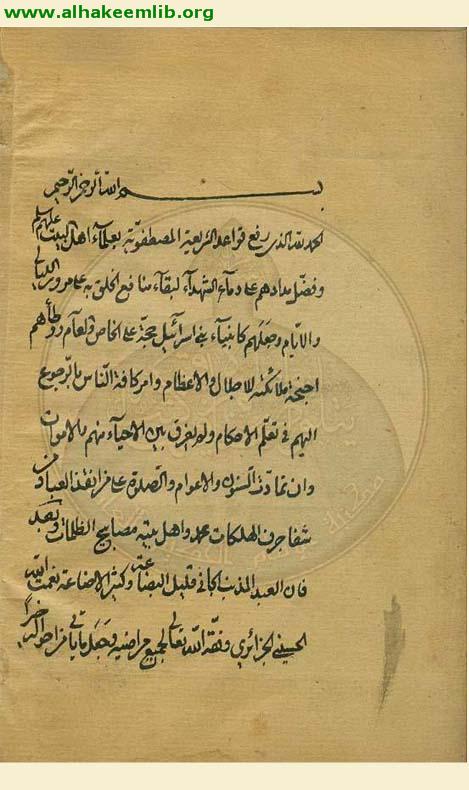 www.alhakeemlib.org
بسم الله الرحمن الرحيم
الحمد لله الذي رفع قواعد الشريعة المصطفوية بعلماء اهل البيت عليهم السلم
وفضل مدادهم على دماء الشهداء لبقاء منافع الخلق به على مرور الليالي
والايام وجعلهم كانبياء بني اسرائيل حجة على الخاص والعام ووطأهم
اجنحة ملائكته للاجلال والاعظام وامر كافة الناس بالرجوع
اليهم في تعلم الاحكام ولم يفرق بين الاحياء منهم والاموات
وان تمادت السنون والاعوام والصلوة على من انقذ العباد من
شفا جرف الهلكات محمد واهل بيته مصابيح الظلمات وبعد
فان العبد المذنب الجاني قليل البضاعة وكثير الاضاعة نعمت الله
الحسيني الجزائري وفقه الله تعالى لجميع مراضيه وجعل ما ياتي من احواله خيرا